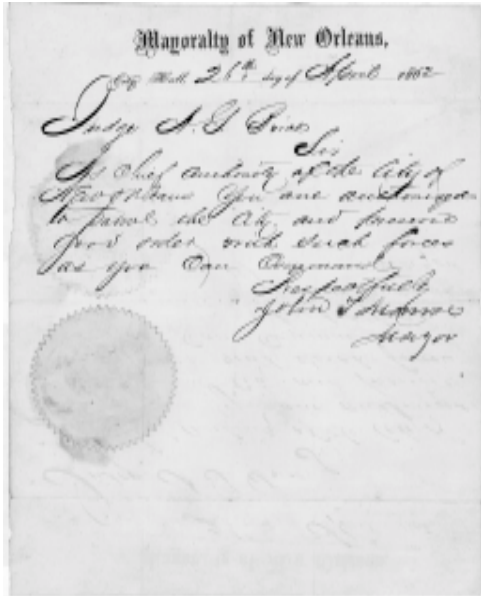 Mayoralty of New Orleans,
City Hall, 26th day of April 1862
Judge A. G. Brice
Sir
As chief authority of the City of
New Orleans you are authorized
to patrol the City and preserve
good order with such forces
as you can command
Respectfully
John T Monroe
Mayor